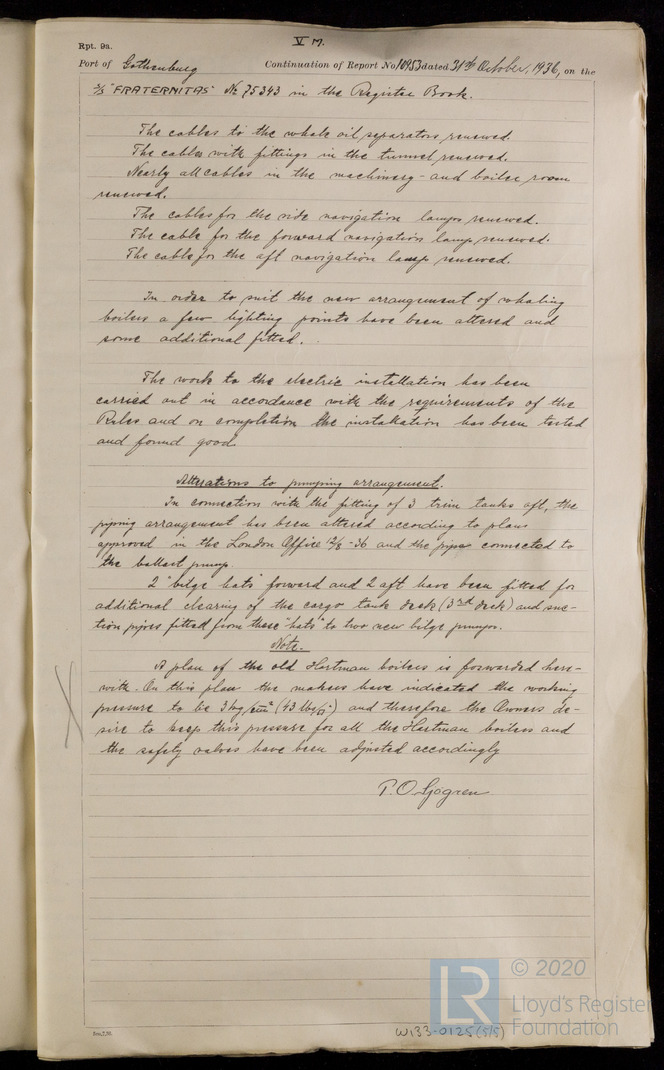 Rpt. 9a.
V M.
Port of Gothenburg Continuation of Report No 10953 dated 31st October, 1936, on the
S/S "FRATERNITAS" No 75343 in the Register Book.
The cables to the whale oil separators renewed.
The cables with fittings in the tunnel renewed.
Nearly all cables in the machinery- and boiler room
renewed.
The cables for the side navigation lamps renewed.
The cable for the forward navigation lamp renewed.
The cable for the aft navigation lamp renewed.
In order to suit the new arrangement of whaling
boilers a few lighting points have been altered and
some additional fitted.
The work to the electric installation has been
carried out in accordance with the requirements of the
Rules and on completion the installation has been tested
and found good
Alterations to pumping arrangement.
In connection with the fitting of 3 trim tanks aft, the
piping arrangement has been altered according to plans
approved in the London Office 12/8-36 and the pipes connected to
the ballast pump.
2 "bilge hats" forward and 2 aft have been fitted for
additional clearing of the cargo tank deck (3rd deck) and suc-
tion pipes fitted from these "hats" to two new bilge pumps.
Note.
A plan of the old Hartman boilers is forwarded here-
with. On this plan the makers have indicated the working
pressure to be 3 kg/cm² (43 lbs/□") and therefore the Owners de-
sire to keep this pressure for all the Hartman boilers and
the safety valves have been adjusted accordingly
P.O. Sjögren
© 2020
LR
Lloyd's Register
Foundation
W133-0125(5/5)